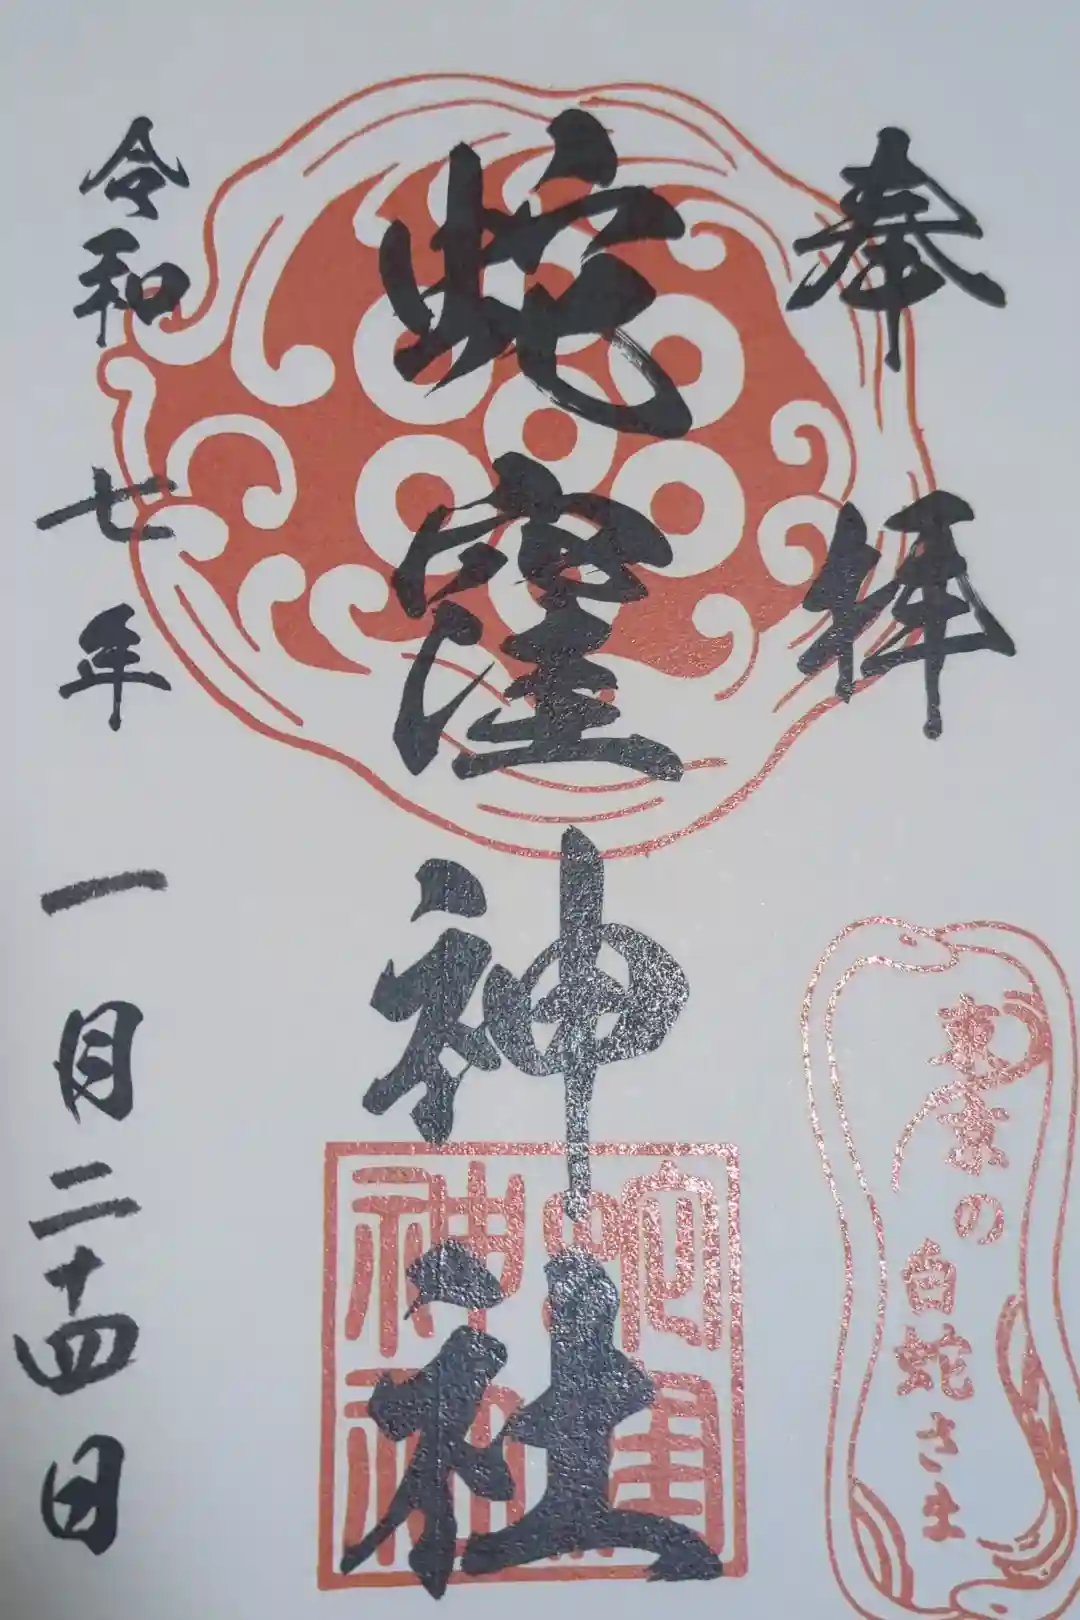 奉拝
蛇窪神社
令和七年一月二十四日
東京の白蛇さま
蛇窪
神社